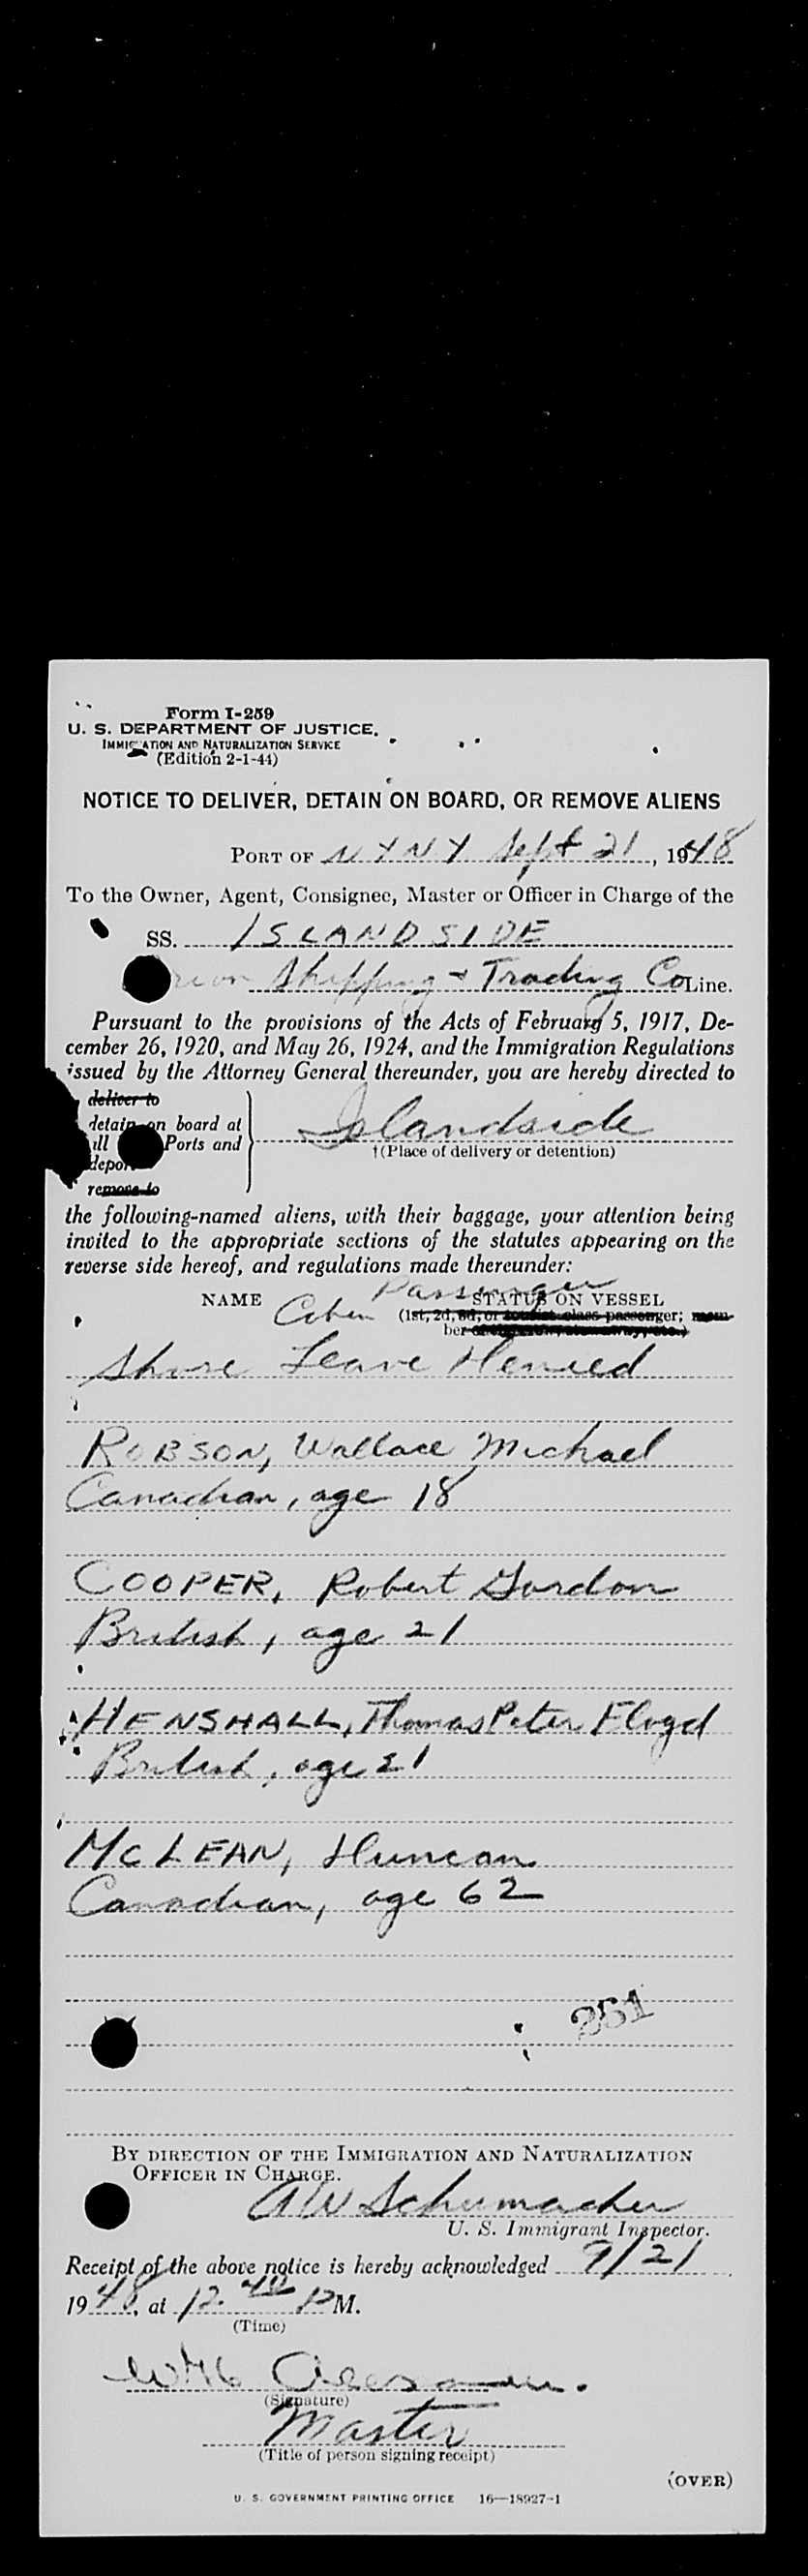 Form I-259
U. S. DEPARTMENT OF JUSTICE.
IMMIGRATION AND NATURALIZATION SERVICE
(Edition 2-1-44)
NOTICE TO DELIVER, DETAIN ON BOARD, OR REMOVE ALIENS
PORT OF NYNY Sept 21, 1948
To the Owner, Agent, Consignee, Master or Officer in Charge of the
SS. ISLANDSIDE
Shipping & Trading Co Line.
Pursuant to the provisions of the Acts of February 5, 1917, De-
cember 26, 1920, and May 26, 1924, and the Immigration Regulations
issued by the Attorney General thereunder, you are hereby directed to
deliver to
detain on board at
all Ports and
depor
remove to
Islandside
†(Place of delivery or detention)
the following-named aliens, with their baggage, your attention being
invited to the appropriate sections of the statutes appearing on the
reverse side hereof, and regulations made thereunder:
Passenger
NAME STATUS ON VESSEL
(1st, 2d, 3d, or tourist class passenger; mem-
ber
Shore Leave Denied
ROBSON, Wallace Michael
Canadian, age 18
COOPER, Robert Gordon
British, age 21
HENSHALL, Thomas Peter Floyd
British, age 21
MCLEAN, Duncan
Canadian, age 62
251
BY DIRECTION OF THE IMMIGRATION AND NATURALIZATION
OFFICER IN CHARGE.
A W Schumacher
U. S. Immigrant Inspector.
Receipt of the above notice is hereby acknowledged 9/21
1948, at 12.40 P M.
(Time)
(Signature)
Master
(Title of person signing receipt)
(OVER)
U. S. GOVERNMENT PRINTING OFFICE 16—18927-1